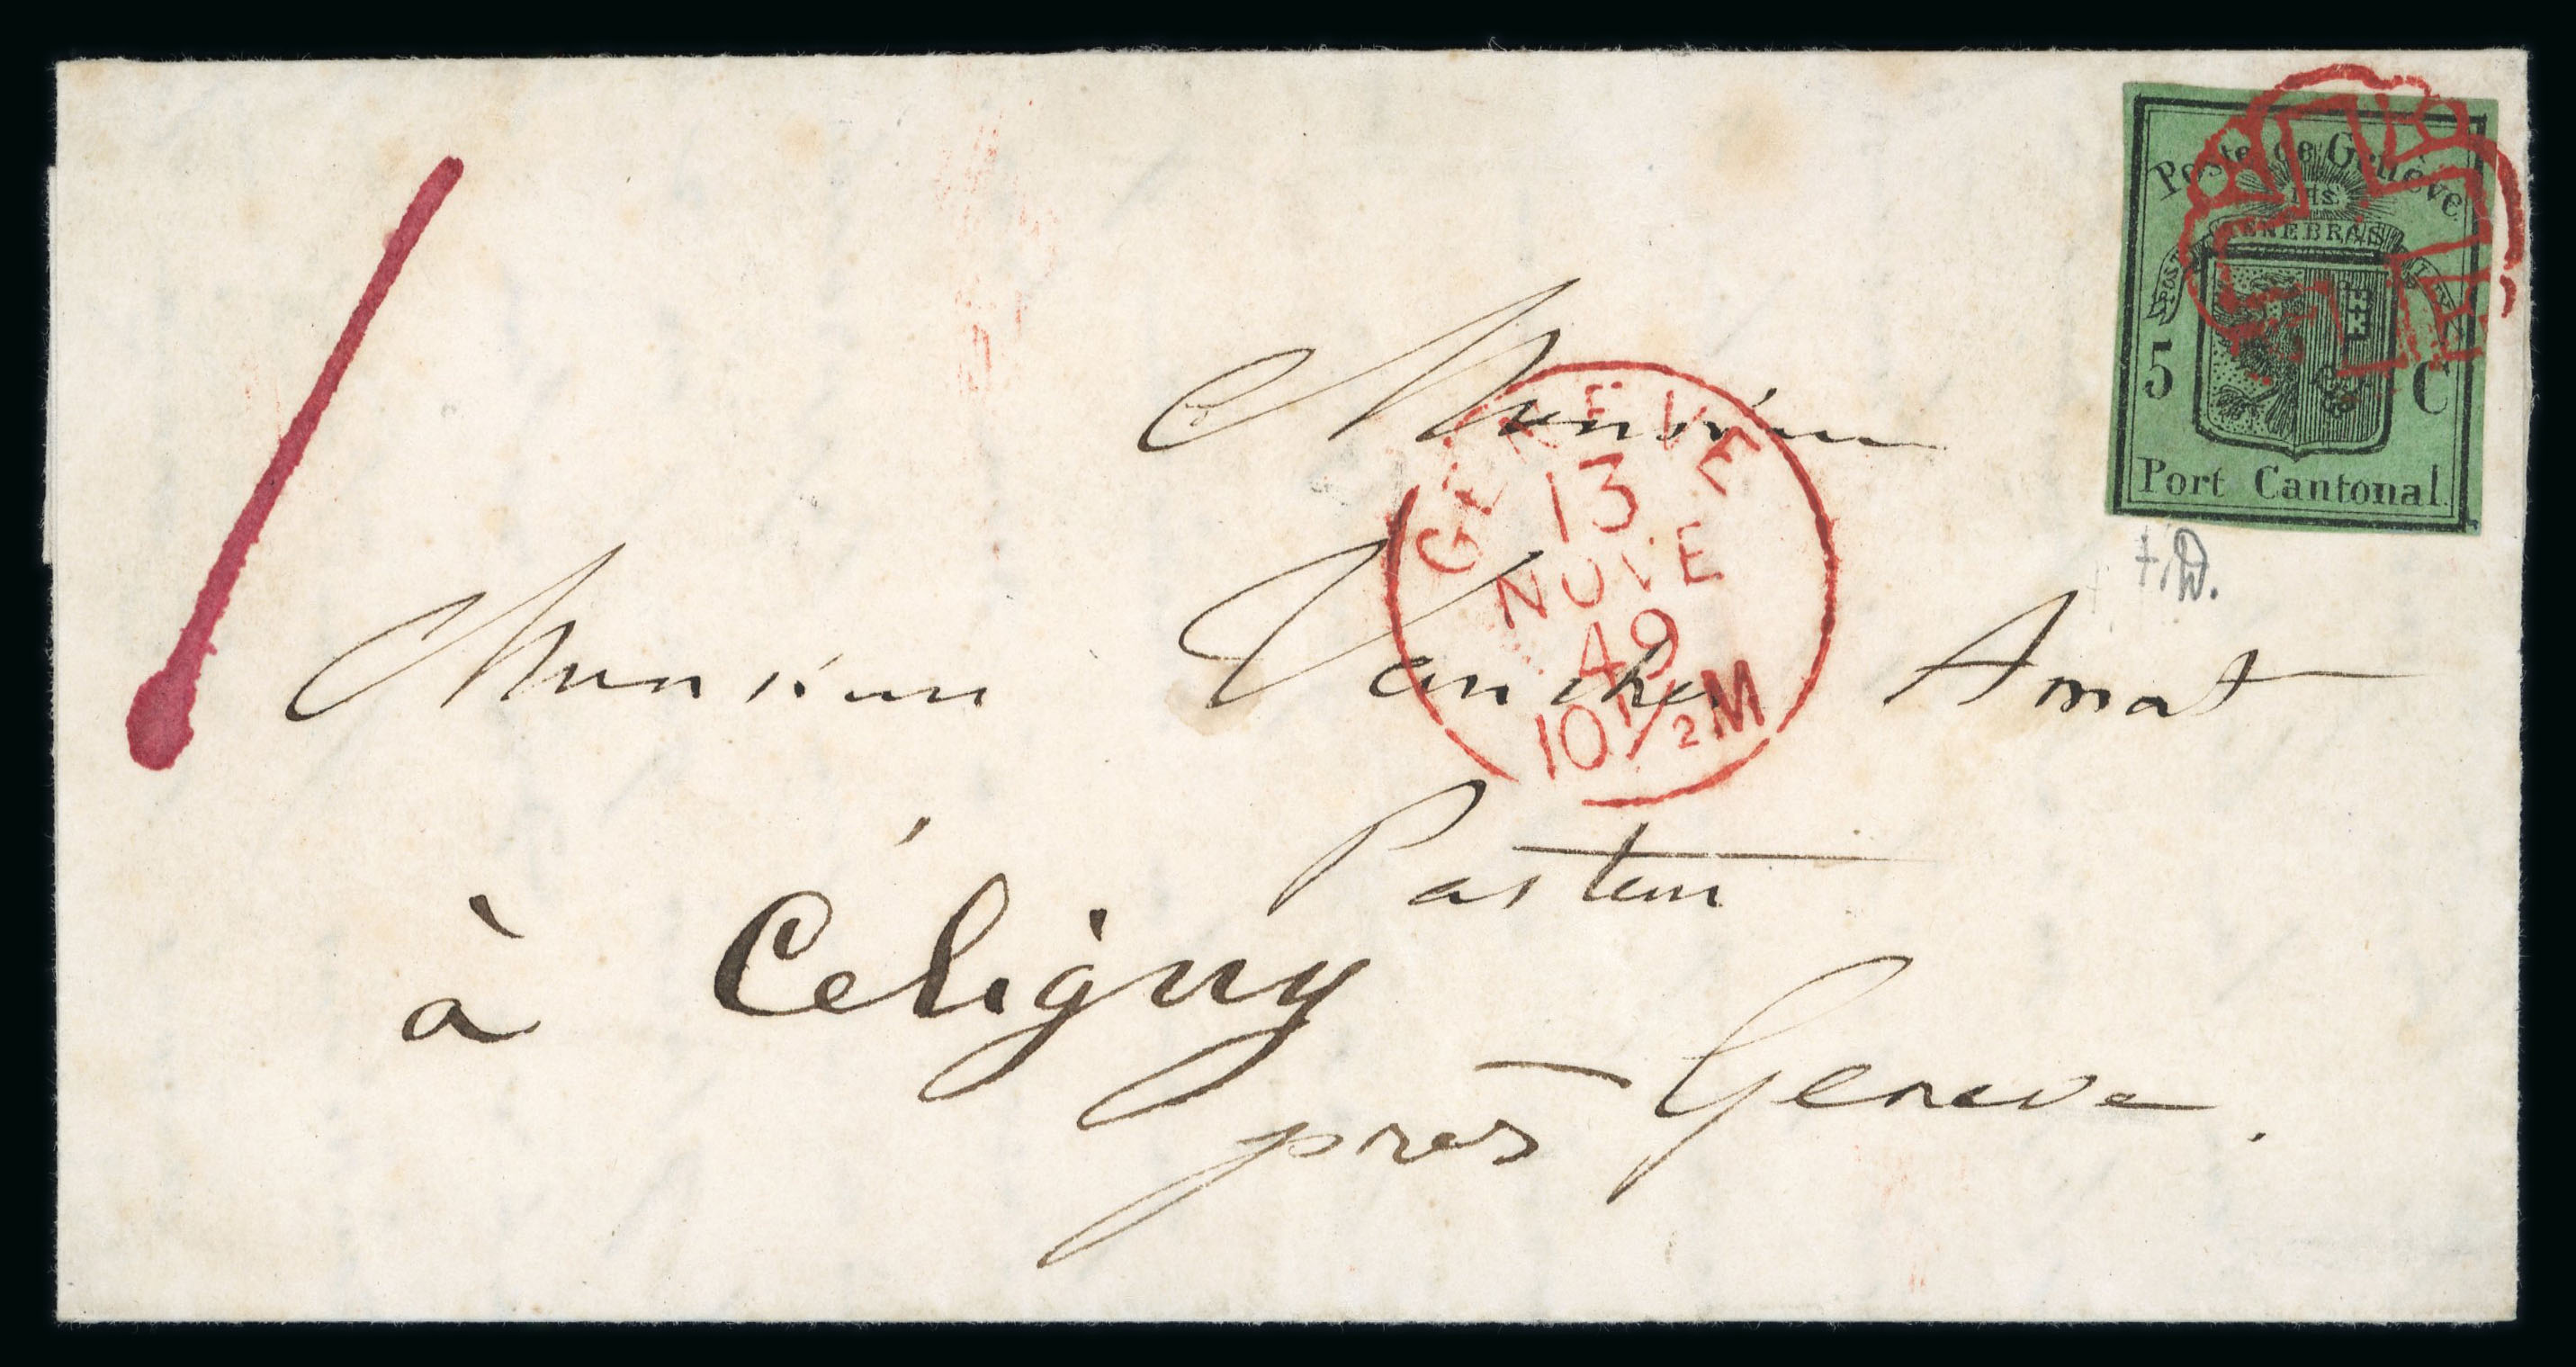 Poste de Genève
TENEBRAS
POST
5 C
Port Cantonal.
Monsieur
GENEVE
13
NOVE
49
10 1/2 M
Monsieur Vaucher Amat
Pasteur
à Céligny
près Geneve.